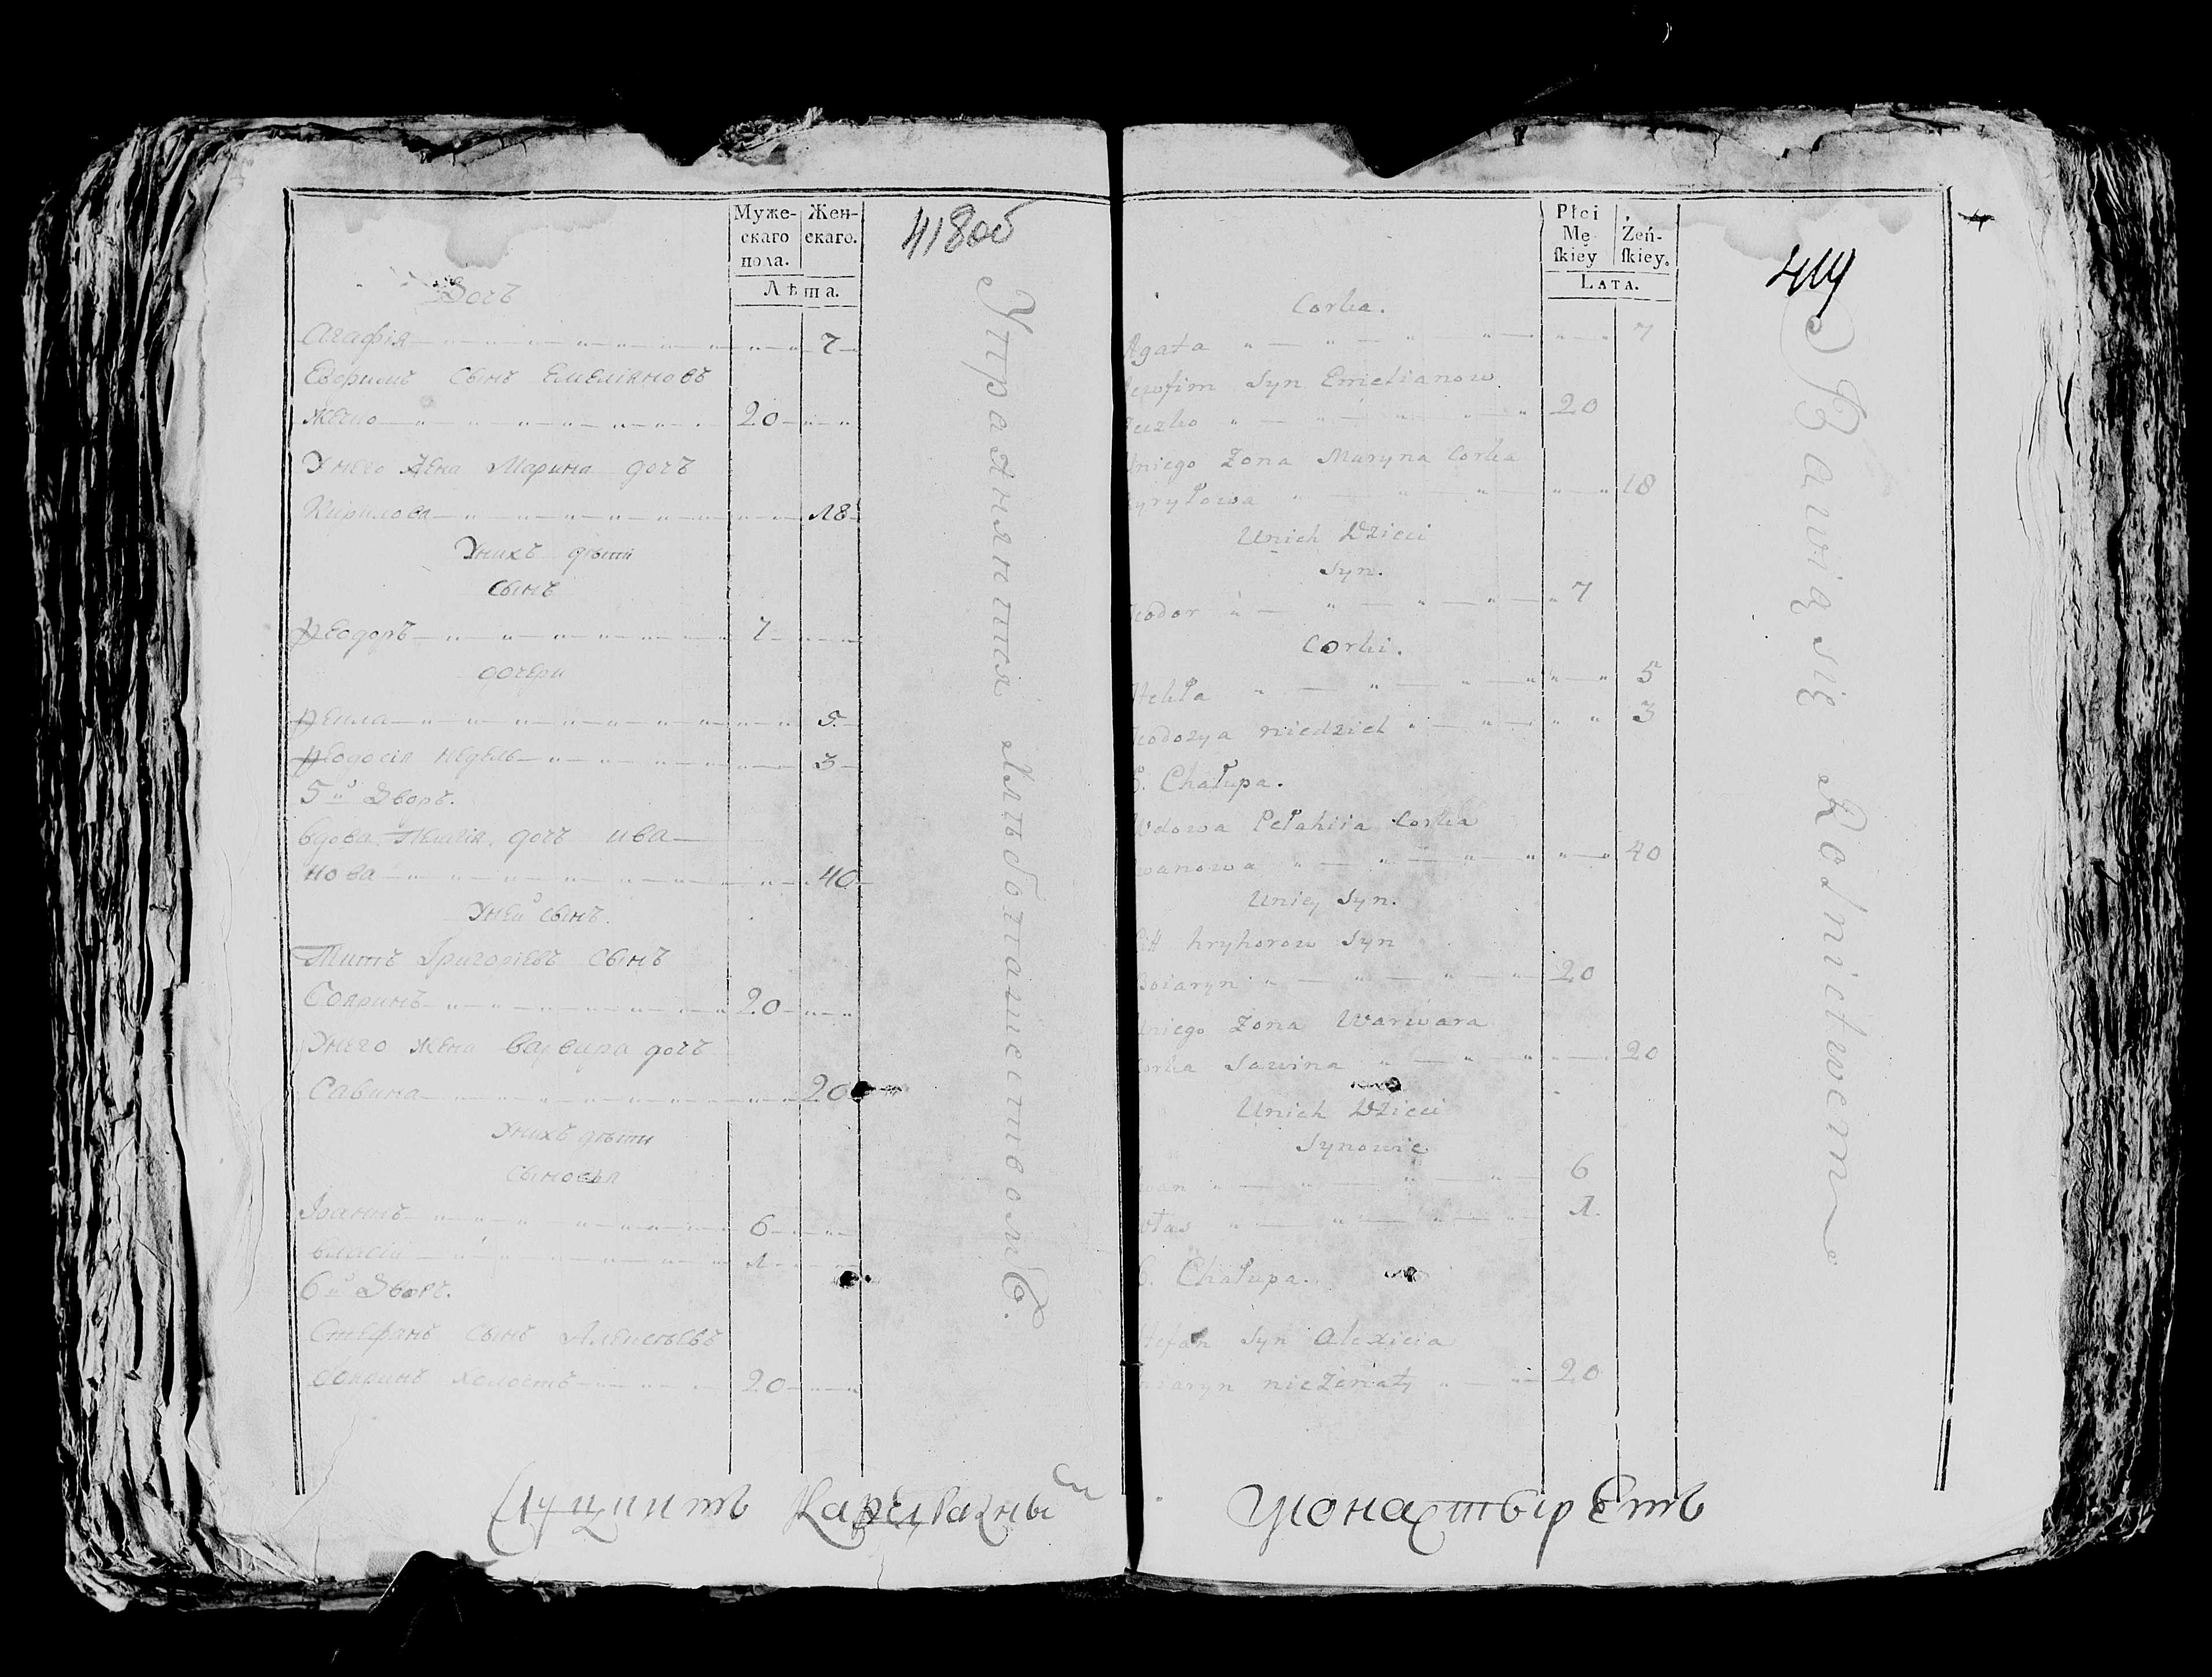 Муже-
скаго
пола.
Жен-
скаго.
Лѣта.
418об
Дочь
Агафія 7
Евфимъ сынъ Емеліяновъ
20
У него жена Марина дочъ
Кирилова 18
У нихъ дѣти
сынъ
Ѳеодоръ 7
дочери
Ѳекла 5
Ѳеодосія недель 3
5й Дворъ.
вдова Пелагія дочъ ива-
нова 40
У ней сынъ.
Титъ Григоріевъ сынъ
Бояринъ 20
У него жена варвара дочъ
Савина 20
У нихъ дѣти
сыновья
Іоаннъ 6
власій 1
6й Дворъ.
Стефанъ сынъ Алексѣевъ
бояринъ холостъ 20
Упражняются хлѣбопашествомъ.
Płci
Mę-
skiey
Żeń-
skiey.
Lata.
419
Corka.
Agata 7
Syn Emielianow
20
Uniego Zona Maryna Corka
Kyryłowa 18
Unich Dzieci
Syn.
Teodor 7
Corki.
Tekła 5
Teodozya niedziel 3
5. Chałupa.
Wdowa Pełahiia Corka
Iwanowa 40
Uniey Syn.
Tit hryhorow Syn
Boiaryn 20
Uniego Zona Warwara
Corka Sawina 20
Unich Dzieci
Synowie
Iwan 6
Włas 1
6. Chałupa.
Stefan Syn Alexieia
Boiaryn nieżeniaty 20
Bawią się Rolnictwem
монастырептъ